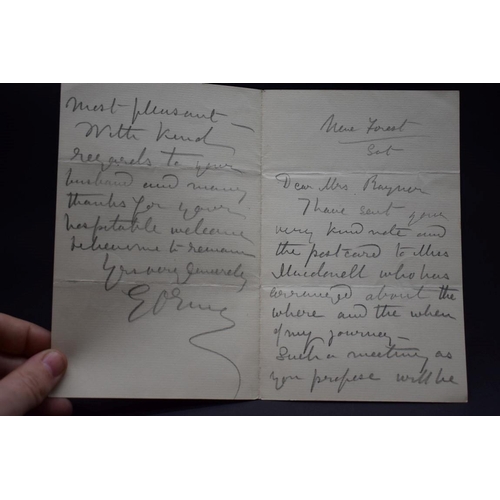 New Forest
Sat
Dear Mrs Raynor
I have sent your
very kind note and
the postcard to Mrs
Macdonell who has
arranged about the
where and the when
of my journey –
Such a meeting as
you propose will be
most pleasant –
With kind
regards to your
husband and many
thanks for your
hospitable welcome
believe me to remain
Yrs very sincerely